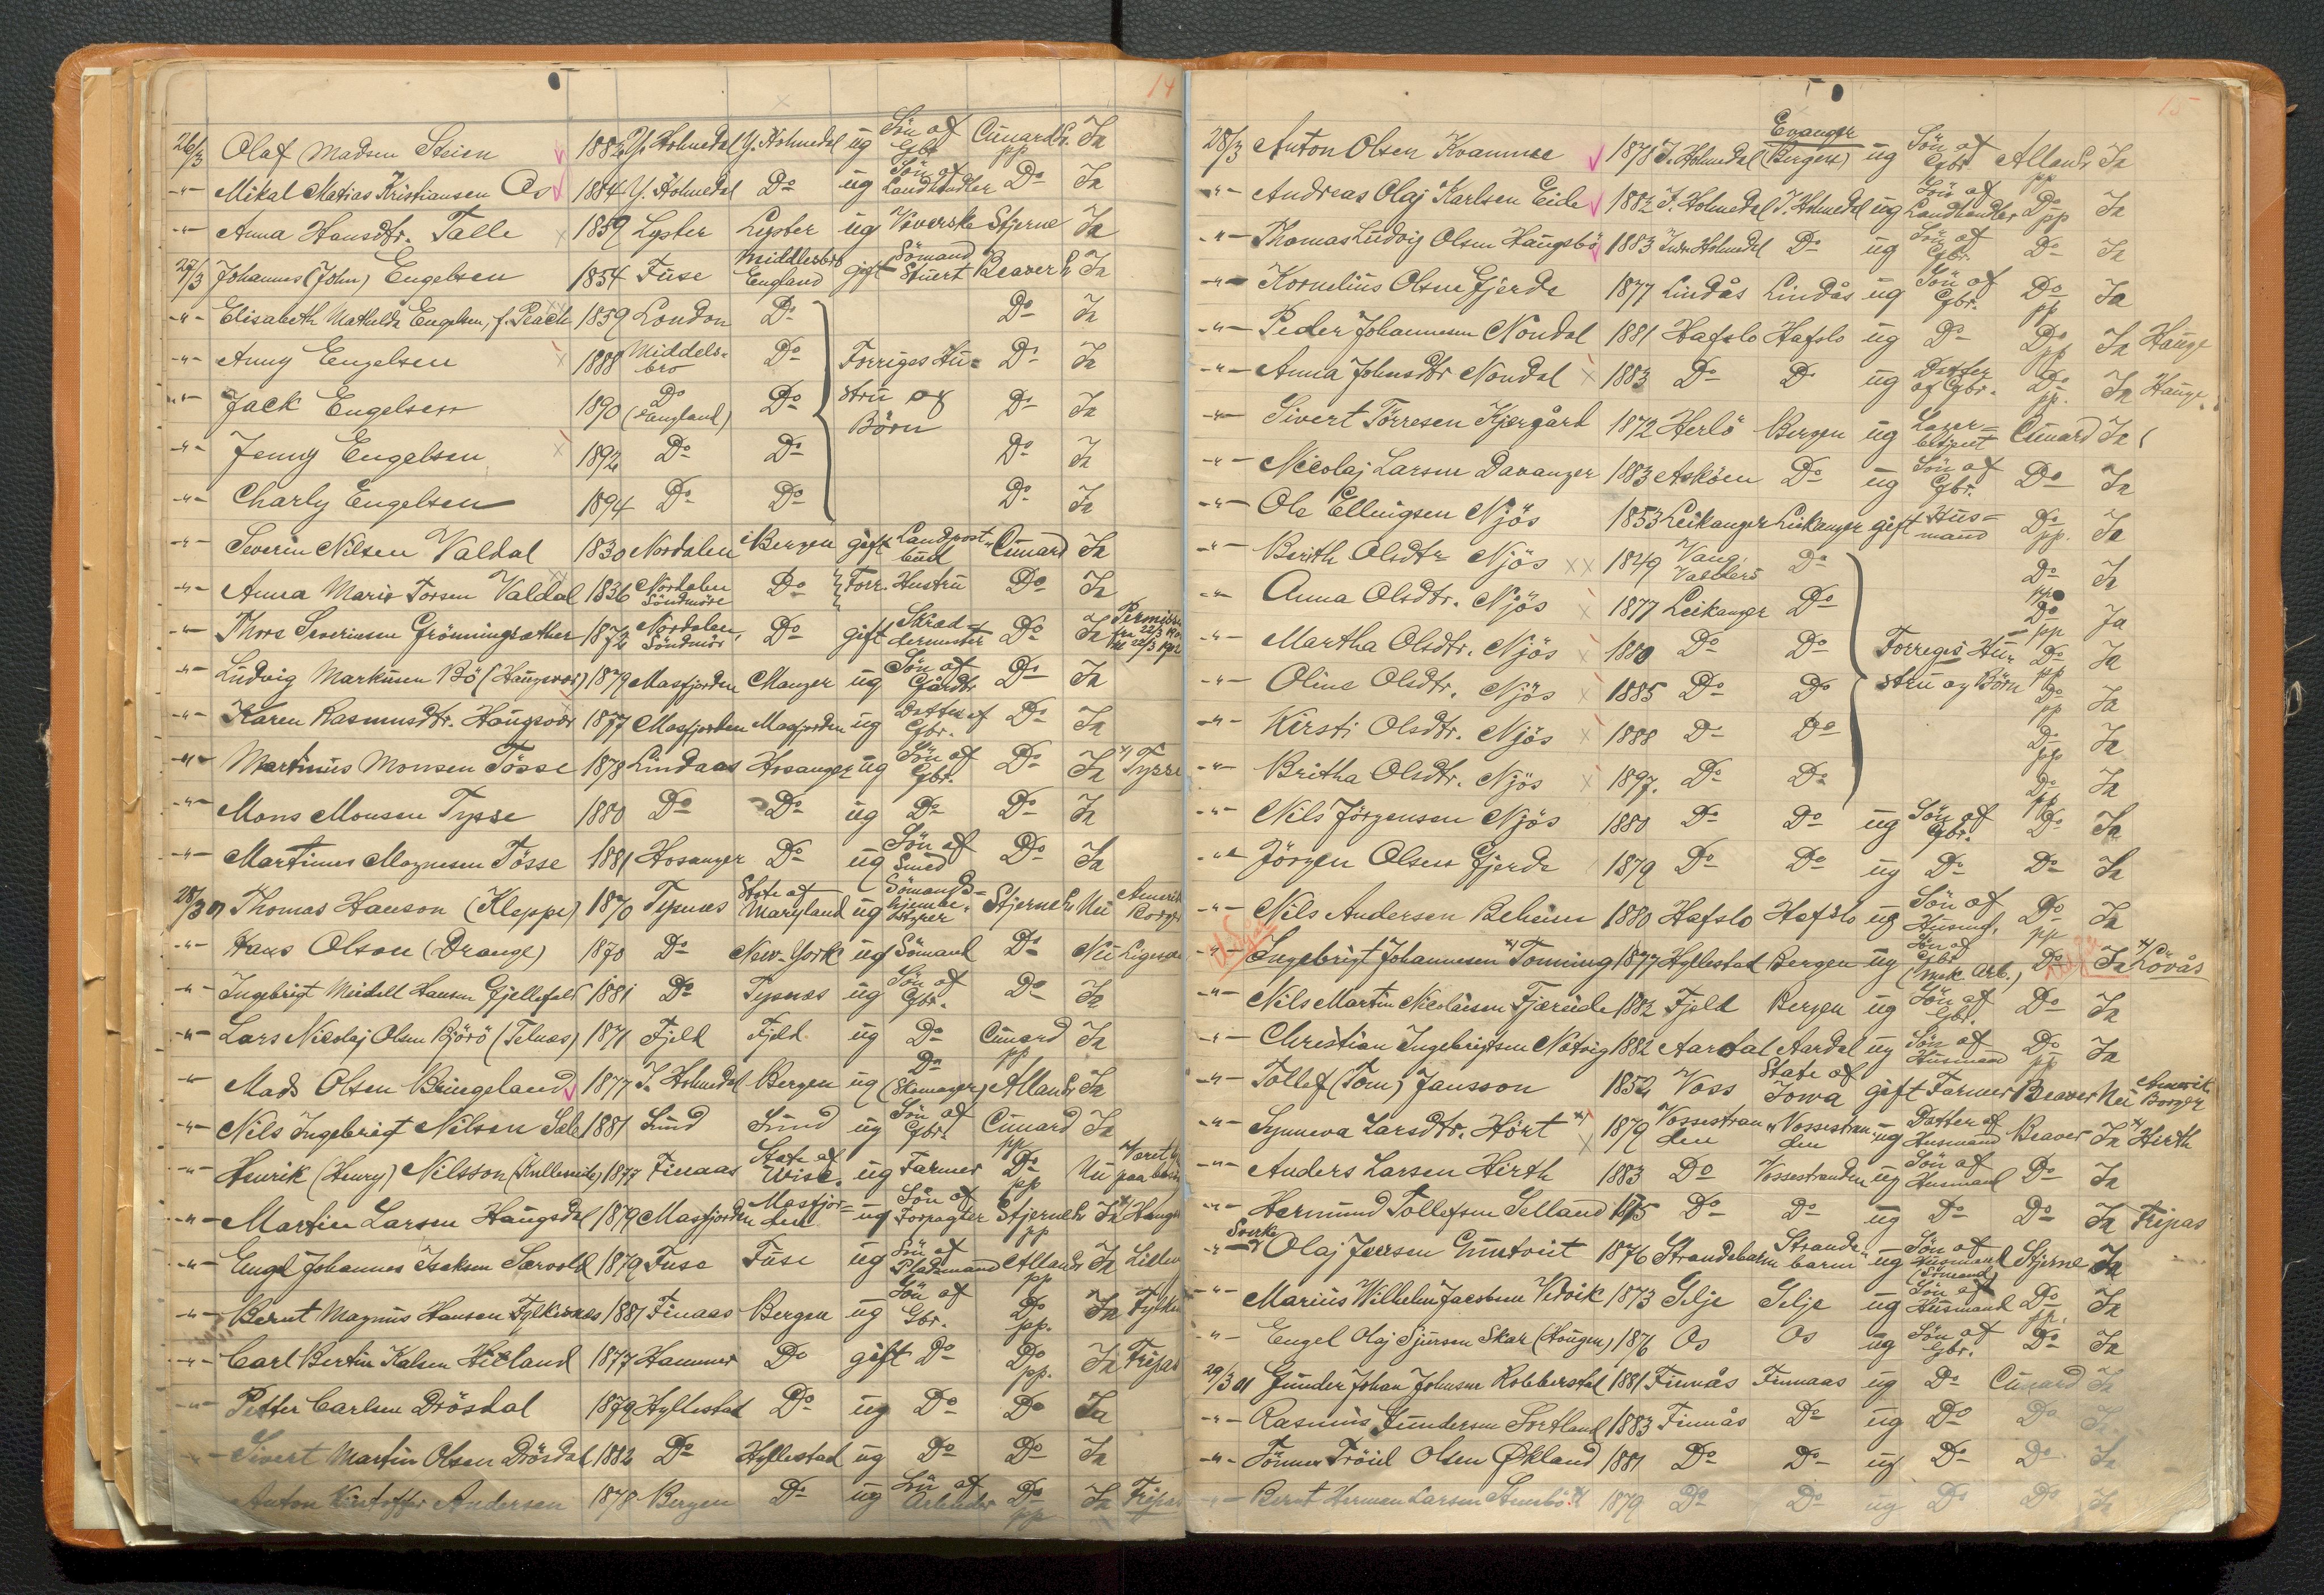 14
26/3 Olaf Madsen Steien 1882 Y. Holmedal Y. Holmedal ug Sön af Gbr. Cunard L. pp Ja
-"- Mikal Matias Kristiansen Os 1884 Y. Holmedal Do ug Sön af Landhandler Do Ja
-"- Anna Hansdtr. Talle 1859 Lyster Lyster ug Væverske Stjerne Ja
27/3 Johannes (John) Engelsen 1854 Fuse Middlesbro England gift Sömand Stuert Beaver L. Ja
-"- Elisabeth Mathilda Engelsen, f. Peach 1859 London Do Do Ja
-"- Anny Engelsen 1888 Middelsbro Do Forriges Hu= Do Ja
-"- Jack Engelsen 1890 Do (England) Do stru og Do Ja
Börn
-"- Jenny Engelsen 1892 Do Do Do Ja
-"- Charly Engelsen 1894 Do Do Do Ja
-"- Severin Nilsen Valdal 1830 Nordalen Bergen gift Landpostbud Cunard Ja
-"- Anna Marie Torsen Valdal 1836 Nordalen Söndmöre Do Forr. Hustru Do Ja
-"- Thors Severinsen Grönningsæther 1872 Nordalen, Söndmör Do gift Skræddermester Do Ja
-"- Ludvig Markusen Bö (Haugsvær) 1879 Masfjorden Manger ug Sön af Gårdbr Do Ja
-"- Karen Rasmusdtr. Haugsvær 1877 Masfjorden Masfjorden ug Datter af Gbr. Do Ja
-"- Martinus Monsen Tösse 1878 Lindaas Hosanger ug Sön af Gbr. Do Ja Tysse
-"- Mons Monsen Tysse 1880 Do Do ug Do Do Ja
-"- Martinus Magnesen Tösse 1881 Hosanger Do ug Sön af Smed Do Ja
28/3 01 Thomas Hanson (Kleppe) 1870 Tysnæs State of Maryland ug Sömandshjembestyrer Stjerne L. Nei Amerik Borger
-"- Hans Olson (Drange) 1870 Do New-York ug Sömand Do Nei Ligesaa
-"- Ingebrigt Meidell Hansen Gjellefald 1881 Do Tysnæs ug Sön af Gbr. Do Ja
-"- Lars Nicolaj Olsen Björö (Telnæs) 1871 Fjeld Fjeld ug Do Cunard pp Ja
-"- Mads Olsen Bringeland 1877 I. Holmedal Bergen ug Do (Skomager) Allan L. Ja
-"- Nils Ingebrigt Nilsen Sæle 1881 Sund Sund ug Sön af Gbr. Cunard pp Ja
-"- Henrik (Henry) Nilsson 1877 Finaas State of Wisc. ug Farmer Do pp Nei
-"- Martin Larsen Haugsdal 1879 Masfjorden Masfjorden ug Sön af Forpagter Stjerne L. pp Ja
-"- Engel Johannes Isaksen Sævold 1879 Fuse Fuse ug Sön af Pladsmand Allan L. pp Ja
-"- Bernt Magnus Hansen Fylkesnæs 1881 Finaas Bergen ug Sön af Gbr. Do pp. Ja
-"- Carl Bertin Kalsen Helland 1877 Hammer Do gift Do Do pp. Ja Fripas
-"- Petter Carlsen Drösdal 1879 Hyllestad Do ug Do Do Ja
-"- Sivert Martin Olsen Drösdal 1882 Do Hyllestad ug Do Do Ja
Anton Kristoffer Andersen 1878 Bergen Do ug Sön af Arbeider Do pp Ja Fripas
15
28/3 Anton Olsen Kvamme 1878 I. Holmedal Evanger (Bergen) ug Sön af Gbr. Allan L. pp Ja
-"- Andreas Olaj Karlsen Eide 1882 I. Holmedal I. Holmedal ug Sön af Landhandler Do pp Ja
-"- Thomas Ludvig Olsen Haugsbö 1883 Indre Holmedal Do ug Sön af Gbr. Do Ja
-"- Kornelius Olsen Gjerde 1877 Lindås Lindås ug Sön af Gbr. Do pp Ja
-"- Peder Johannesen Nondal 1881 Hafslo Hafslo ug Do Do pp Ja Hauge
-"- Anna Johnsdtr Nondal 1883 Do Do ug Datter af Gbr. Do pp. Ja Hauge
-"- Sivert Törresen Kjærgård 1872 Herlö Bergen ug Lagerbetjent Cunard Ja
-"- Nicolaj Larsen Davanger 1883 Asköen Do ug Sön af Gbr. Do Ja
-"- Ole Ellingsen Njös 1853 Leikanger Leikanger gift Husmand Do pp. Ja
-"- Berith Olsdtr Njös 1849 Vang, Valders Do Do pp Ja
-"- Anna Olsdtr. Njös 1877 Leikanger Do Do pp Ja
-"- Martha Olsdtr. Njös 1880 Do Do Forriges Hu= Do pp Ja
-"- Oline Olsdtr. Njös 1885 Do Do stru og Börn Do pp Ja
-"- Kirsti Olsdtr. Njös 1888 Do Do Do pp Ja
-"- Britha Olsdtr. Njös 1897. Do Do Do pp Ja
-"- Nils Jörgensen Njös 1880 Do Do ug Sön af Gbr. Do Ja
-"- Jörgen Olsen Gjerde 1879 Do Do ug Do Do Ja
-"- Nils Andersen Beheim 1880 Hafslo Hafslo ug Sön af Husmd. Do pp Ja
-"- Ingebrigt Johannesen Tonning 1877 Hyllestad Bergen ug Sön af Gbr (Mek. Arb.) Do Ja Lövås
-"- Nils Martin Nicolaisen Fjæreide 1882 Fjeld Bergen ug Sön af Gbr. Do Ja
-"- Christian Ingebrigtsen Natvig 1882 Aardal Aardal ug Sön af Husmand Do pp Ja
-"- Tollef (Tom) Jansson 1852 Voss State of Iowa gift Farmer Beaver Nei Amerik. Borger
-"- Synneva Larsdtr. Hört 1879 Vossestranden Vossestranden ug Datter af Husmand Beaver Ja Hirth
-"- Anders Larsen Hirth 1883 Do Vossestranden ug Sön af Husmand Do Ja
-"- Hermund Tollefsen Selland 1875 Do Do ug Do Do Ja Fripas
-"- Sverke Olaj Jensen 1876 Strandebarm Strandebarm ug Sön af Husmand (Sömand) Stjerne Ja
-"- Marius Wilhelm Jacobsen Vedvik 1873 Selje Selje ug Sön af Husmand Do pp. Ja
-"- Engel Olaj Sjursen Skar (Haugen) 1876 Os Os ug Sön af Gbr. Do Ja
29/3 01 Gunder Johan Johnsen Robberstad 1881 Finnås Finnaas ug Do Cunard Ja
-"- Rasmus Gundersen Sortland 1883 Finnås Do ug Do Do Ja
-"- Tönnes Tröiel Olsen Økland 1881 Do Do ug Do Do Ja
-"- Bernt Herman Larsen 1879 Do Do ug Do Do Ja